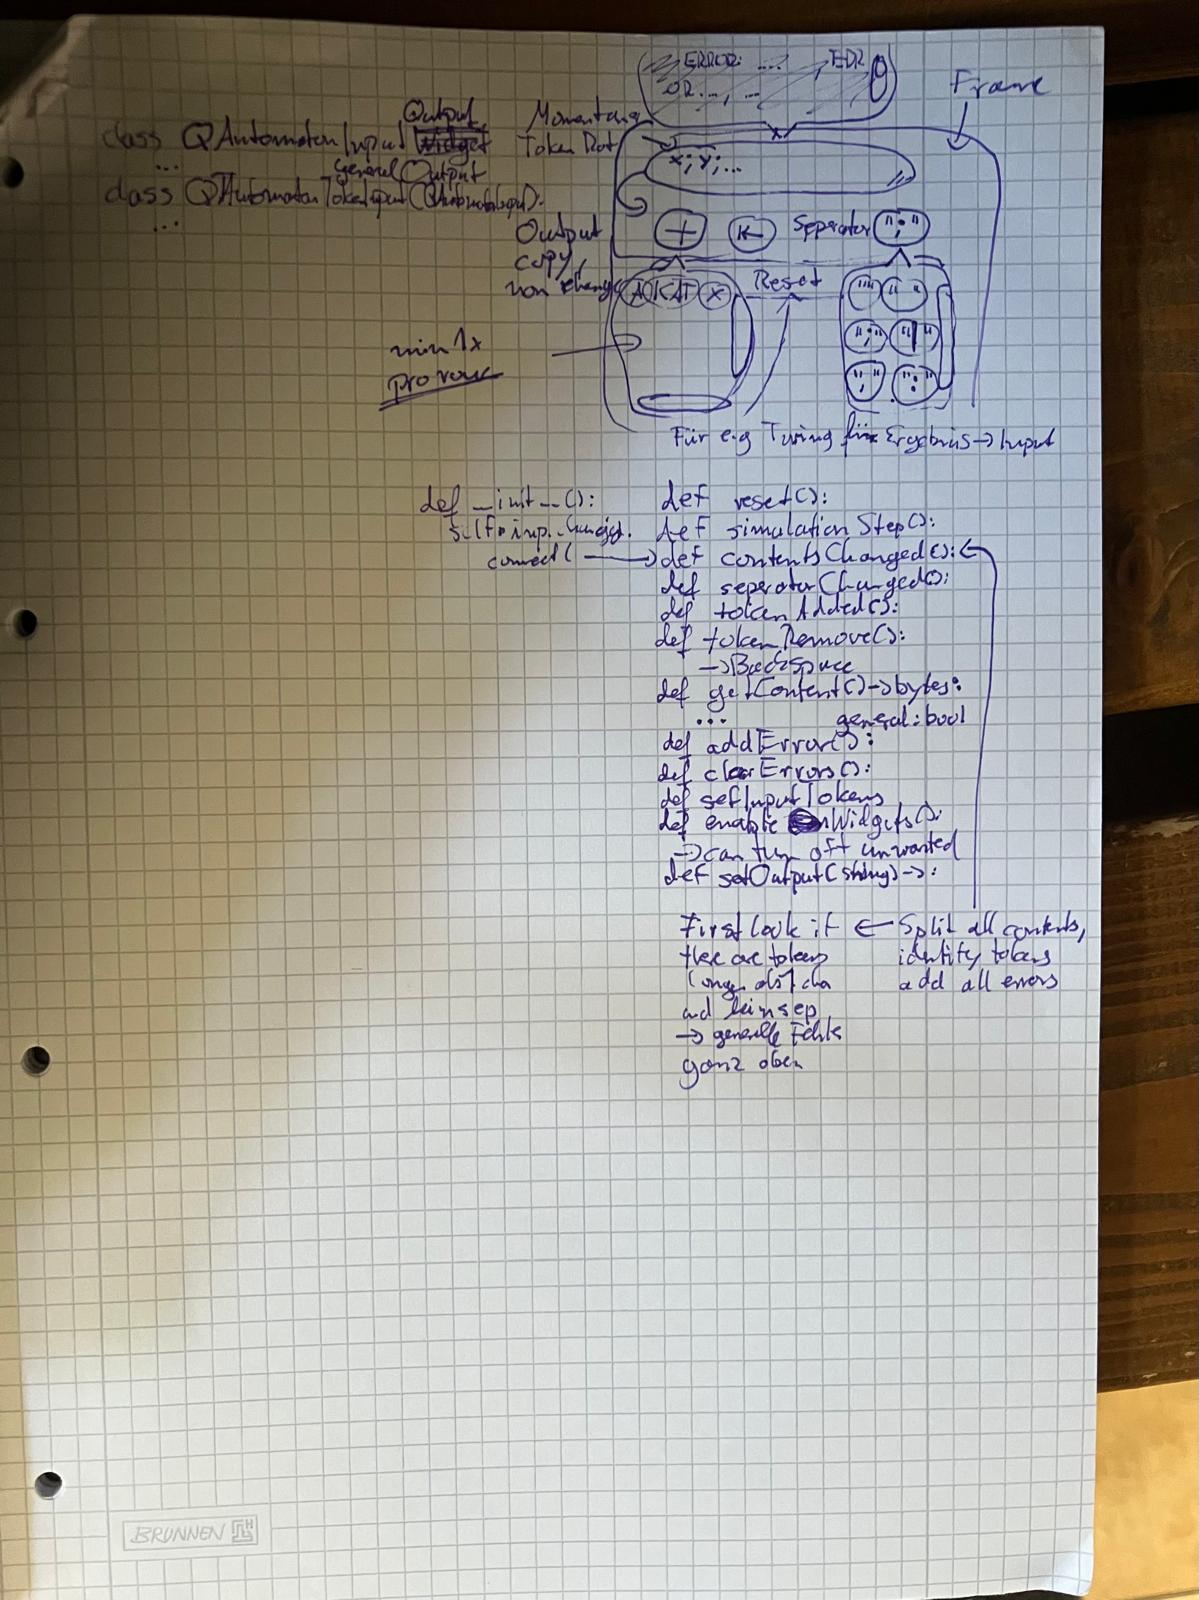 ERROR: .... , EDR
OR..., ...
Frame
Output
class QAutomatonInput Widget
...
general Output
class QAutomatonTokeInput (QAutomatonInput):
...
Momentang
Token Rot
x; y; ...
Output
copy,
non change
+
Seperator ";"
Reset
A KAT X
"" " "
";" "|"
"," ":"
min 1x
pro row
Für e.g Turing für Ergebnis → Input
def __init__():
self.inp.changed.
connect(
def reset():
def simulationStep():
def contentsChanged():
def seperatorChanged():
def tokenAdded():
def tokenRemove():
→Backspace
def getContent()→bytes:
... general: bool
def addError():
def clearErrors():
def setInputTokens
def enable Widgets():
→can turn off unwanted
def setOutput(string)→:
First look if ← Split all contents,
there are tokens identify tokens
longer als 1 cha add all errors
and kein sep
→ generelle Fehler
ganz oben
BRUNNEN